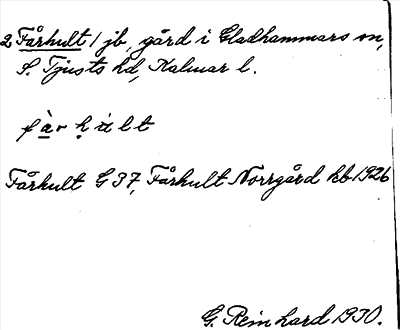 2 Fårhult / jb, gård i Gladhammars sn,
S. Tjusts hd, Kalmar l.
fàrhùlt
Fårhult G 37, Fårhult Norrgård kb 1926
G. Reinhard 1930.